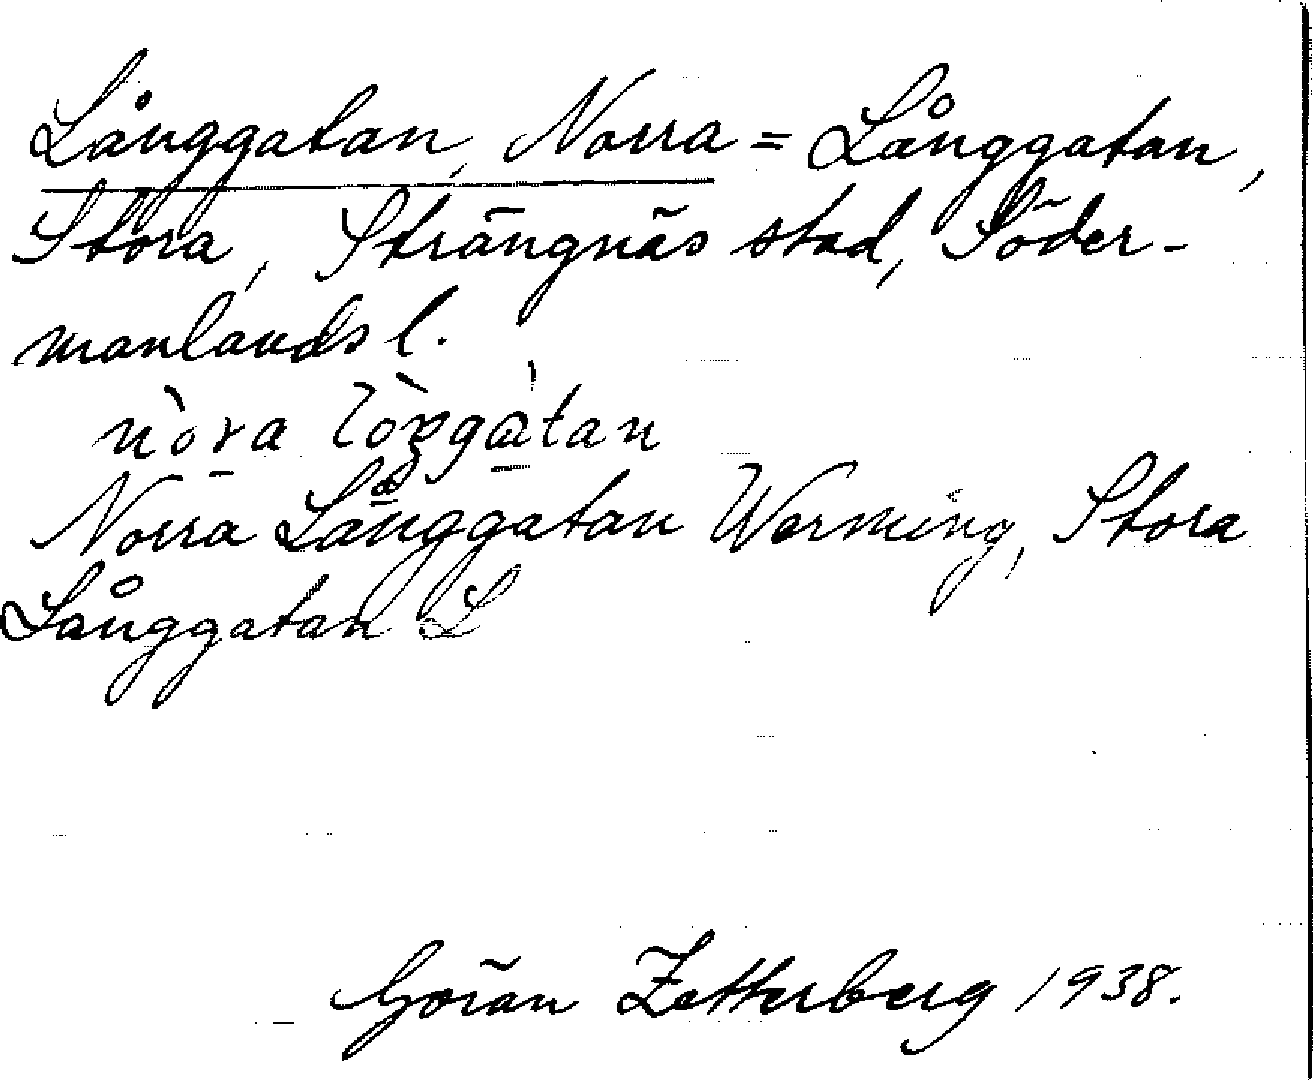 Långgatan, Norra = Långgatan,
Stora, Strängnäs stad, Söder-
manlands l.
nòra lòŋgàtan
Norra Långgatan Werming, Stora
Långgatan L
Göran Zetterberg 1938.